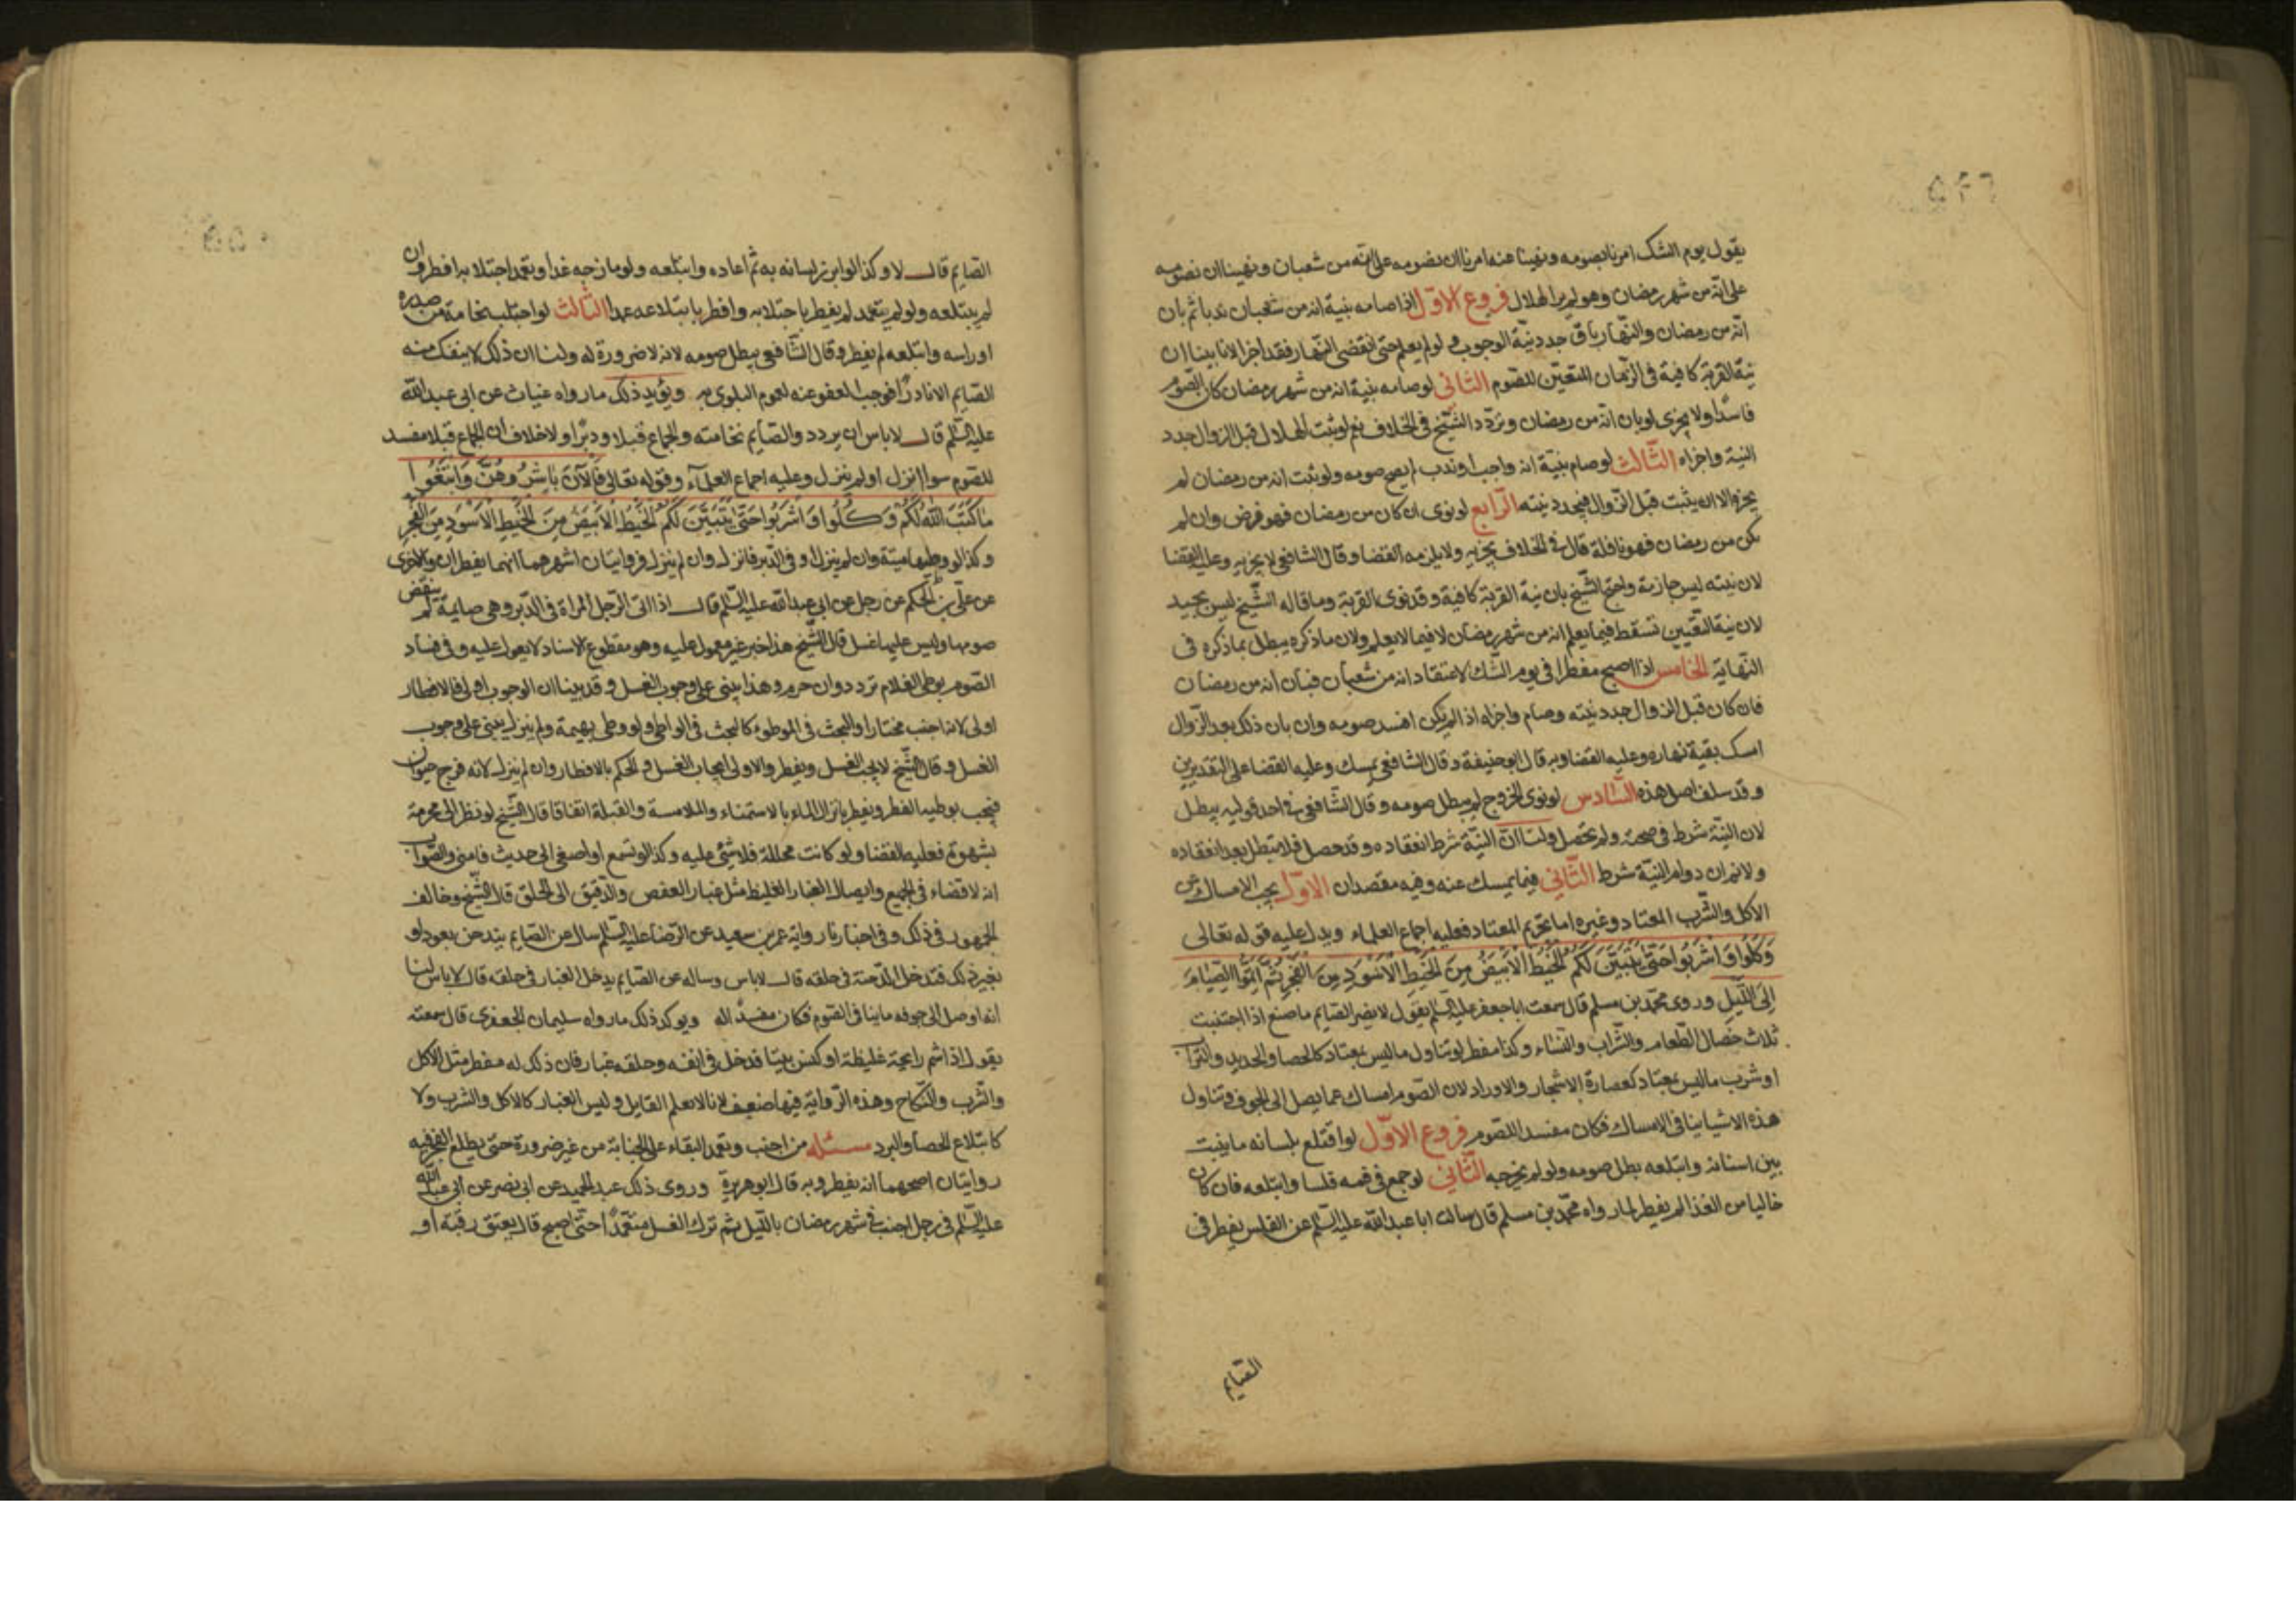 يقول يوم الشك امرنا بصومه ونهينا عنه امرنا ان نصومه على انه من شعبان ونهينا ان نصومه
على انه من شهر رمضان وهو لم ير الهلال فروع الاول اذا صامه بنية انه من شعبان ندبا ثم بان
انه من رمضان والنهار باق جدد نية الوجوب ولو لم يعلم حتى انقضى النهار فقد اجزا لانا بينا ان
نية القربة كافية في الزمان المتعين للصوم الثاني لو صامه بنية انه من شهر رمضان كان الصوم
فاسدا ولا يجزى لو بان انه من رمضان وتردد الشيخ في الخلاف نعم لو ثبت الهلال قبل الزوال جدد
النية واجزاه الثالث لو صام بنية انه واجب او ندب لم يصح صومه ولو ثبت انه من رمضان لم
يجزه الا ان يثبت قبل الزوال فيجدد نيته الرابع لو نوى ان كان من رمضان فهو فرض وان لم
يكن من رمضان فهو نافلة قال في الخلاف يجزيه ولا يلزمه القضا وقال الشافعي لا يجزيه وعليه القضا
لان نيته ليس جازمة واحتج الشيخ بان نية القربة كافية وقد نوى القربة وما قاله الشيخ ليس بجيد
لان نية التعيين تسقط فيما يعلم انه من شهر رمضان لا فيما لا يعلم ولان ما ذكره يبطل بما ذكره في
النهاية الخامس اذا اصبح مفطرا في يوم الشك لاعتقاد انه من شعبان فبان انه من رمضان
فان كان قبل الزوال جدد نيته وصام واجزاه اذا لم يكن افسد صومه وان بان ذلك بعد الزوال
امسك بقية نهاره وعليه القضا وبه قال ابو حنيفة وقال الشافعي يمسك وعليه القضا على التقديرين
وقد سلف اصل هذه السادس لو نوى الخروج لم يبطل صومه وقال الشافعي في احد قوليه يبطل
لان النية شرط في صحته ولم تحصل ولنا ان النية شرط انعقاده وقد حصل فلا تبطل بعد انعقاده
ولا نم ان دوام النية شرط الثاني فيما يمسك عنه وفيه مقصدان الاول يجب الامساك عن
الاكل والشرب المعتاد وغيره اما تحريم المعتاد فعليه اجماع العلماء ويدل عليه قوله تعالى
وَكُلُوا وَاشْرَبُوا حَتَّى يَتَبَيَّنَ لَكُمُ الْخَيْطُ الْأَبْيَضُ مِنَ الْخَيْطِ الْأَسْوَدِ مِنَ الْفَجْرِ ثُمَّ أَتِمُّوا الصِّيَامَ
إِلَى اللَّيْلِ وروى محمد بن مسلم قال سمعت ابا جعفر عليه السلم يقول لا يضر الصايم ما صنع اذا اجتنبت
ثلاث خصال الطعام والشراب والنساء وكذا مفطر لو تناول ما ليس بمعتاد كالحصا والحديد والتراب
او شرب ما ليس بمعتاد كعصارة الاشجار والاوراد لان الصوم امساك عما يصل الى الجوف فتناول
هذه الاشيا ينافي الامساك فكان مفسدا للصوم فروع الاول لو اقتلع بلسانه ما ينبت
بين اسنانه وابتلعه بطل صومه ولو لم يخرجه الثاني لو جمع في فمه قلسا وابتلعه فان كان
خاليا من الغذا لم يفطر لما رواه محمد بن مسلم قال سالت ابا عبد الله عليه السلم عن القلس يفطر في
الصايم
الصايم قال لا وكذا لو ابرز لسانه به ثم اعاده وابتلعه ولو مازجه غذا وتعمد اجتلابه افطر وان
لم يبتلعه ولو لم يتعمد لم يفطر باجتلابه وافطر بابتلاعه عمدا الثالث لو اجتلب نخامة من صدره
او راسه وابتلعه لم يفطر وقال الشافعي يبطل صومه لانه لا ضرورة له ولنا ان ذلك لا ينفك منه
الصايم الا نادرا فوجب العفو عنه لعموم البلوى به ويؤيد ذلك ما رواه غياث عن ابي عبد الله
عليه السلم قال لا باس ان يردد الصايم نخامته والجماع قبلا ودبرا ولا خلاف ان الجماع قبلا مفسد
للصوم سوا انزل او لم ينزل وعليه اجماع العلماء وقوله تعالى فَالْآنَ بَاشِرُوهُنَّ وَابْتَغُوا
مَا كَتَبَ اللَّهُ لَكُمْ وَكُلُوا وَاشْرَبُوا حَتَّى يَتَبَيَّنَ لَكُمُ الْخَيْطُ الْأَبْيَضُ مِنَ الْخَيْطِ الْأَسْوَدِ مِنَ الْفَجْرِ
وكذا لو وطيها ميتة وان لم ينزل او في الدبر فانزل وان لم ينزل فروايتان اشهرهما انهما يفطران والاخرى
عن علي بن الحكم عن رجل عن ابي عبد الله عليه السلم قال اذا اتى الرجل المراة في الدبر وهي صايمة لم ينقض
صومها وليس عليها غسل قال الشيخ هذا خبر غير معمول عليه وهو مقطوع الاسناد لا يعول عليه وفي فساد
الصوم بوطى الغلام تردد وان حرم وهذا يبنى على وجوب الغسل وقد بينا ان الوجوب اولى فالافطار
اولى لانه اجنب مختارا والبحث في الموطوء كالبحث في الواطى ولو وطى بهيمة ولم ينزل يبنى على وجوب
الغسل وقال الشيخ لا يجب الغسل ويفطر والاولى ايجاب الغسل والحكم بالافطار وان لم ينزل لانه فرج حيوان
فيجب بوطيه الفطر ويفطر بانزال الماء بالاستمناء والملامسة والقبلة اتفاقا قال الشيخ لو نظر الى محرمة
بشهوة فعليه القضا ولو كانت محللة فلا شئ عليه وكذا لو تسمع او اصغى الى حديث فامنى والصواب
انه لا قضاء في الجميع وايصال الغبار الغليظ مثل غبار العفص والدقيق الى الحلق قال الشيخ وخالف
الجمهور في ذلك وفي اخبارنا رواية عمر بن سعيد عن الرضا عليه السلم سال عن الصايم يتدخن بعود او
بغير ذلك فتدخل الدخنة في حلقه قال لا باس وساله عن الصايم يدخل الغبار في حلقه قال لا باس لنا
انه اوصل الى جوفه ما ينافي الصوم فكان مفسدا له ويوكد ذلك ما رواه سليمان الجعفري قال سمعته
يقول اذا شم رايحة غليظة او كنس بيتا فدخل في انفه وحلقه غبار فان ذلك له مفطر مثل الاكل
والشرب والنكاح وهذه الرواية فيها ضعيف لانا لا نعلم القايل وليس الغبار كالاكل والشرب ولا
كابتلاع الحصا والبرد مسئله من اجنب وتعمد البقاء على الجنابة من غير ضرورة حتى يطلع الفجر فيه
روايتان اصحهما انه يفطر وبه قال ابو هريرة وروى ذلك عبد الحميد عن ابي نصر عن ابي عبد الله
عليه السلم في رجل اجنب في شهر رمضان بالليل ثم ترك الغسل متعمدا حتى اصبح قال يعتق رقبة او